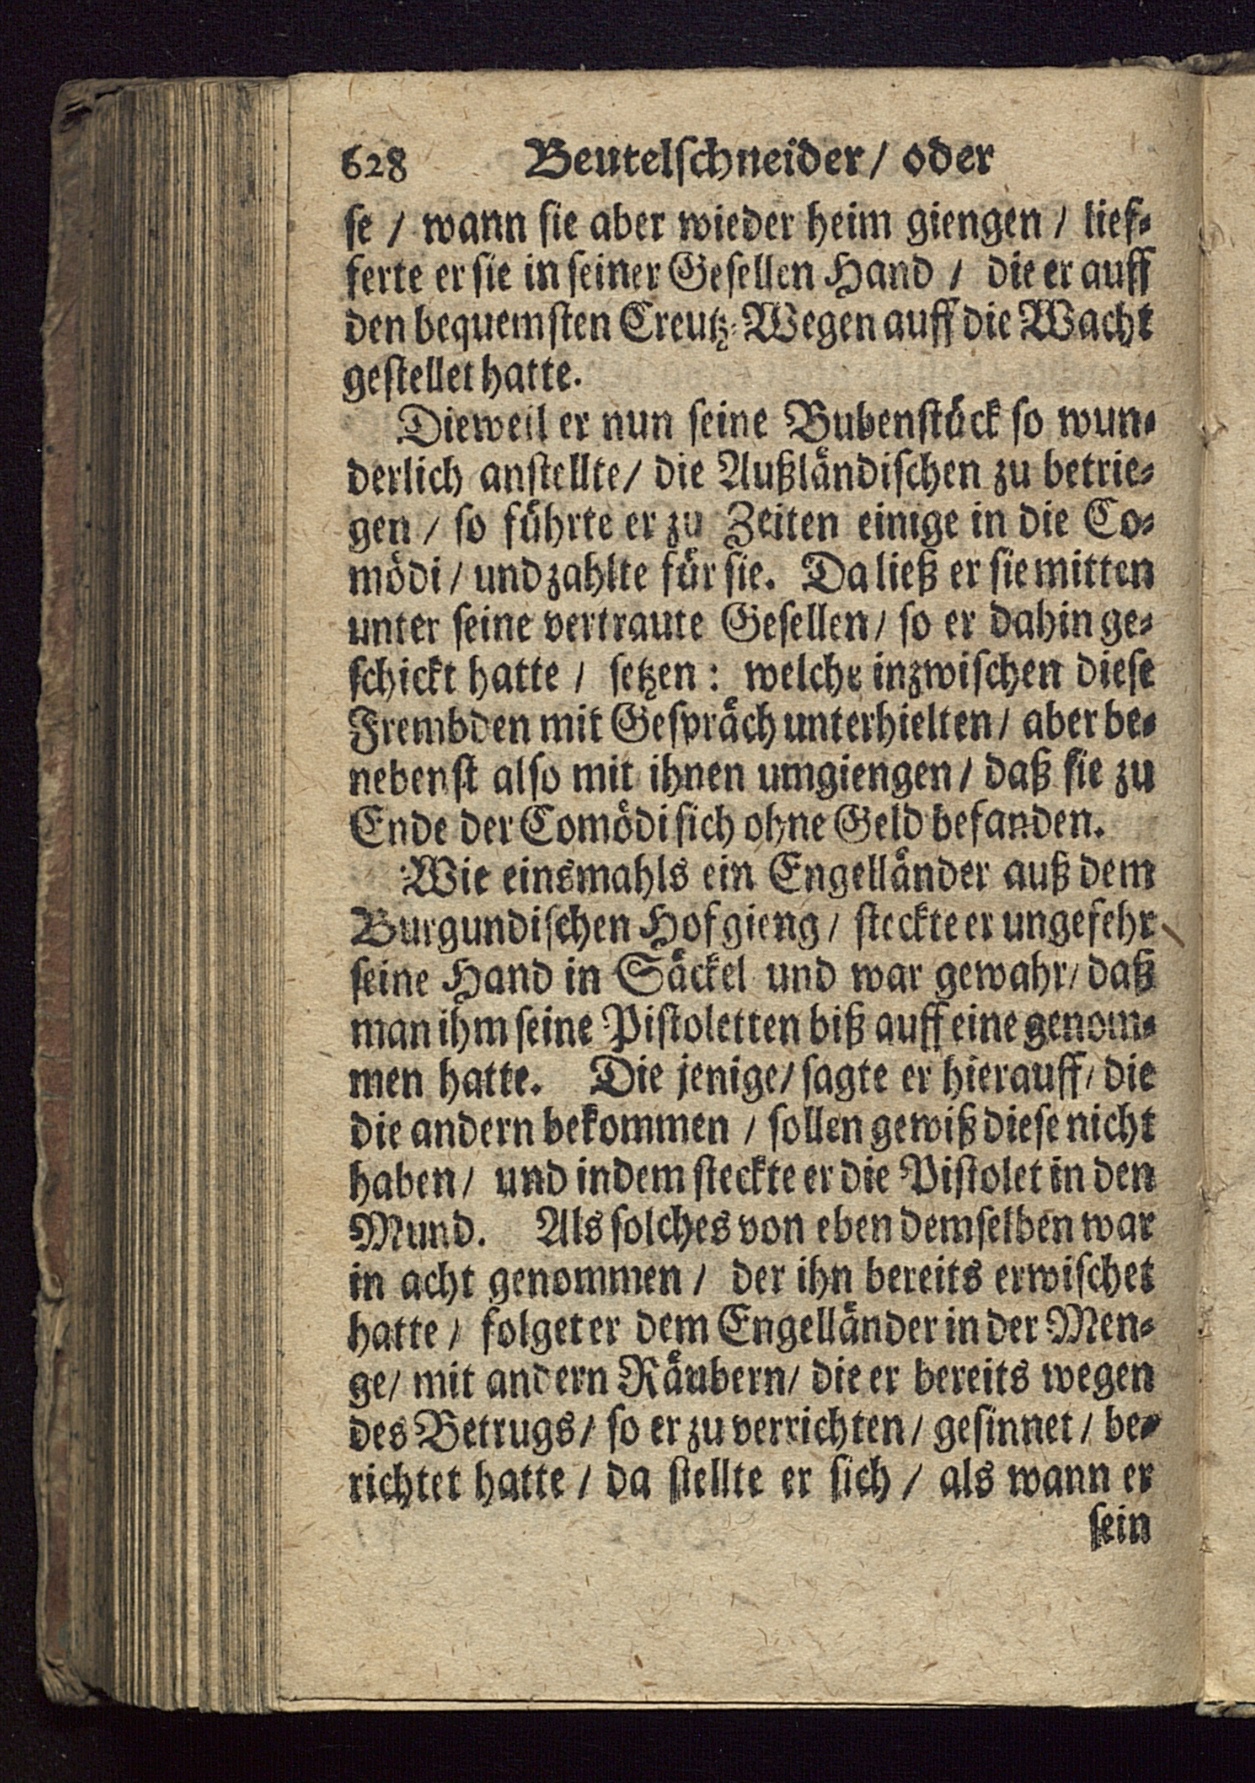 628 Beutelſchneider/ oder
ſe / wann ſie aber wieder heim giengen / lief⸗
ferte er ſie in ſeiner Geſellen Hand / die er auff
den bequemſten Creutz⸗Wegen auff die Wacht
geſtellet hatte.
Dieweil er nun ſeine Bubenſtück ſo wun⸗
derlich anſtellte/ die Außländiſchen zu betrie⸗
gen / ſo führte er zu Zeiten einige in die Co⸗
mödi / und zahlte für ſie. Da ließ er ſie mitten
unter ſeine vertraute Geſellen / ſo er dahin ge⸗
ſchickt hatte / ſetzen : welche inzwiſchen dieſe
Frembden mit Geſpräch unterhielten / aber be⸗
nebenſt alſo mit ihnen umgiengen / daß ſie zu
Ende der Comödi ſich ohne Geld befanden.
Wie einsmahls ein Engelländer auß dem
Burgundiſchen Hof gieng / ſteckte er ungefehr
ſeine Hand in Säckel und war gewahr/ daß
man ihm ſeine Piſtoletten biß auff eine genom⸗
men hatte. Die jenige/ ſagte er hierauff/ die
die andern bekommen / ſollen gewiß dieſe nicht
haben/ und indem ſteckte er die Piſtolet in den
Mund. Als ſolches von eben demſelben war
in acht genommen / der ihn bereits erwiſchet
hatte / folget er dem Engelländer in der Men⸗
ge/ mit andern Räubern/ die er bereits wegen
des Betrugs/ ſo er zu verrichten / geſinnet / be⸗
richtet hatte / da ſtellte er ſich / als wann er
ſein